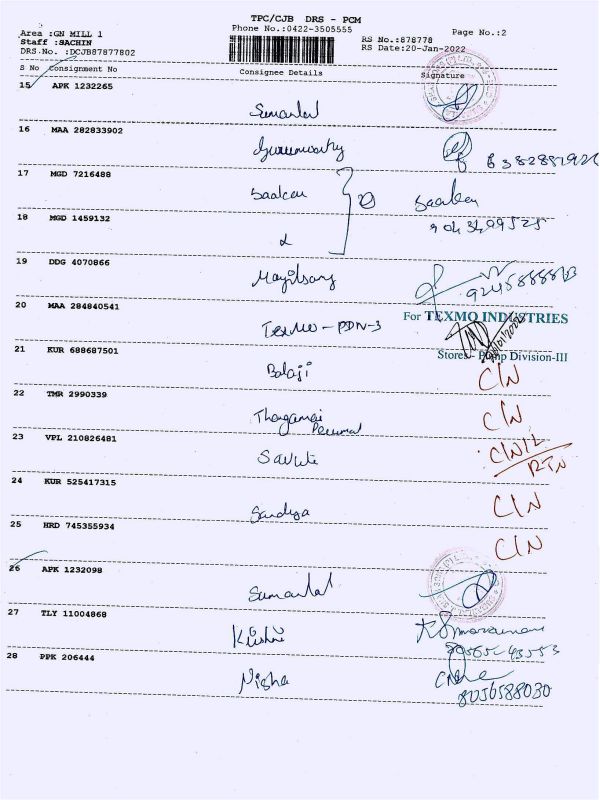 TPC/CJB DRS - PCM
Phone No.:0422-3505555
Area :GN MILL 1
Staff :SACHIN
DRS.No. :DCJB87877802
RS No.:878778
RS Date:20-Jan-2022
Page No.:2
S No Consignment No Consignee Details Signature
15 APK 1232265
Sumantal
16 MAA 282833902
Gurumoorthy
17 MGD 7216488
18 MGD 1459132
19 DDG 4070866
20 MAA 284840541
Texmo - PDN-3
For TEXMO INDUSTRIES
Stores - Pump Division-III
21 KUR 688687501
Balaji C/N
22 TMR 2990339
Perumal C/N
23 VPL 210826481
RTN
24 KUR 525417315
Sandiya C/N
25 HRD 745355934
C/N
26 APK 1232098
Sumantal
27 TLY 11004868
28 PPK 206444
Nisha
8056588030